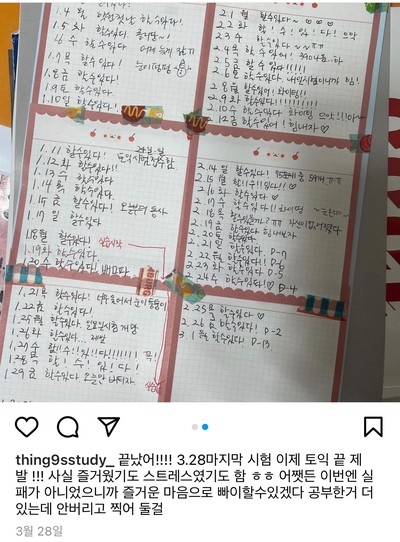 1.4 월
1.5 화 할수있다!
1.6 수 할수있다
1.7 목 할수있다!
1.8 금 할수있다!
1.9 토 할수있다!
1.10 일 할수있다!
1.11 할수있다!
1.12 화 할수있다!!
1.13 수 할수있다!
1.14 목 할수있다!
1.15 금 할수있다! 오늘부터
1.17 일 할수있다!
1.18 월 할수있다!
1.19 화 할수있다!
1.20 수 할수있다!
1.21 목 할수있다!
1.22 금 할수있다!
1.25 월 할수있다
1.26 화 할수있다 제발
1.27 수 할!!수!!있!!다!!!!!!!
1.28 목 할!수!있!다!
1.29 금 할수있다 오늘만 버티자
2.1 월 할수있다~ ♡♡♡
2.2 화 할!수!있!다!
2.3 수 할수있다~
2.4 목 할수있어!
2.5 금 할수있다!!!!!
2.8 월 할수있어! 화이팅!!
2.9 화 할수있다!!!!!!!!!!
2.10 수 할수있다 화이팅
2.12 금 할수있어! 힘내자♡
2.14 일 할수있다!
2.15 월 할!!수!!있다!!♡
2.16 화 할수있다♡
2.17 수 할수있다!! 화이팅
2.18 목 할수있을까?ㅠㅠ 자신이 없어졌다
2.19 금 할수있다 힘내보자
2.20 토 할수있다
2.21 일 할수있다 D-9
2.22 월 할수있다! D-8
2.23 화 할수있다 D-5
2.24 수 할수있다! ♡ D-4
2.25 목 할수있다♡
2.26 금 할수있다! D-2
3.1 월 할수있다! D-13
thing9sstudy_ 끝났어!!!! 3.28마지막 시험 이제 토익 끝 제
발 !!! 사실 즐거웠기도 스트레스였기도 함 ㅎㅎ 어쨋든 이번엔 실
패가 아니었으니까 즐거운 마음으로 빠이할수있겠다 공부한거 더
있는데 안버리고 찍어 둘걸
3월 28일